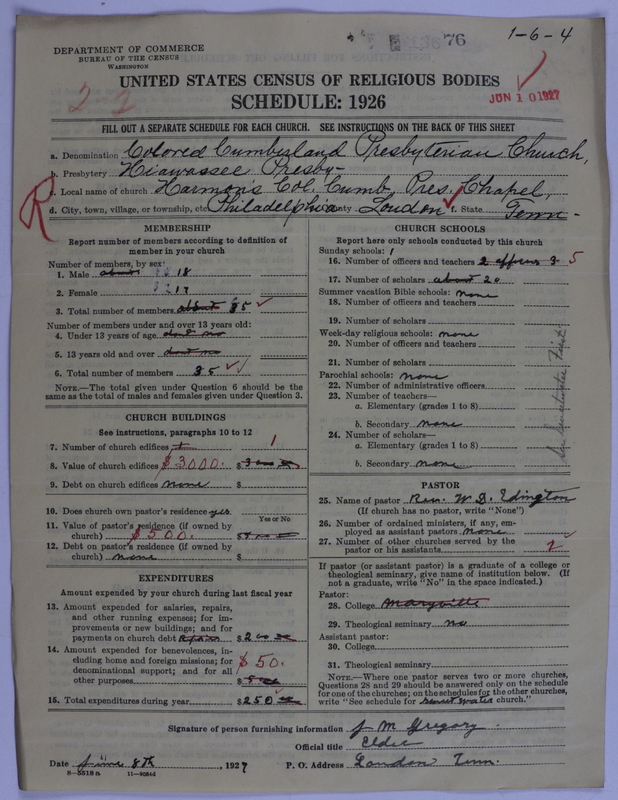 1-6-4
76
DEPARTMENT OF COMMERCE
BUREAU OF THE CENSUS
WASHINGTON
UNITED STATES CENSUS OF RELIGIOUS BODIES
SCHEDULE: 1926
2-2
JUN 10 1927
FILL OUT A SEPARATE SCHEDULE FOR EACH CHURCH. SEE INSTRUCTIONS ON THE BACK OF THIS SHEET
a. Denomination Colored Cumberland Presbyterian Church,
b. Presbytery Hiawassee Presby-
c. Local name of church Harmons Col. Cumb. Pres. Chapel,
R
d. City, town, village, or township, etc. Philadelphia County Loudon f. State Tenn-
MEMBERSHIP
Report number of members according to definition of
member in your church
Number of members by sex:
1. Male about 18
2. Female 17
3. Total number of members about 35
Number of members under and over 13 years old:
4. Under 13 years of age dont no
5. 13 years old and over dont no
6. Total number of members 35
NOTE.—The total given under Question 6 should be the
same as the total of males and females given under Question 3.
CHURCH BUILDINGS
See instructions, paragraphs 10 to 12
7. Number of church edifices 1 1
8. Value of church edifices $3000. $
9. Debt on church edifices none $
10. Does church own pastor's residence yes
Yes or No
11. Value of pastor's residence (if owned by
church) $500. $
12. Debt on pastor's residence (if owned by
church) none $
EXPENDITURES
Amount expended by your church during last fiscal year
13. Amount expended for salaries, repairs,
and other running expenses; for im-
provements or new buildings; and for
payments on church debt Repairs $200
14. Amount expended for benevolences, in-
cluding home and foreign missions; for
denominational support; and for all
other purposes $50. $
15. Total expenditures during year $250
CHURCH SCHOOLS
Report here only schools conducted by this church
Sunday schools: 1
16. Number of officers and teachers 2 officers 3 5
17. Number of scholars about 20
Summer vacation Bible schools: none
18. Number of officers and teachers
19. Number of scholars
Week-day religious schools: none
20. Number of officers and teachers
21. Number of scholars
Parochial schools: none
22. Number of administrative officers
23. Number of teachers—
a. Elementary (grades 1 to 8)
b. Secondary none
24. Number of scholars—
a. Elementary (grades 1 to 8)
b. Secondary none
PASTOR
25. Name of pastor Rev. W. D. Edington
(If church has no pastor, write "None")
26. Number of ordained ministers, if any, em-
ployed as assistant pastors none
27. Number of other churches served by the
pastor or his assistants
If pastor (or assistant pastor) is a graduate of a college or
theological seminary, give name of institution below. (If
not a graduate, write "No" in the space indicated.)
Pastor:
28. College Maryville
29. Theological seminary no
Assistant pastor:
30. College
31. Theological seminary
NOTE.—Where one pastor serves two or more churches,
Questions 28 and 29 should be answered only on the schedule
for one of the churches; on the schedules for the other churches,
write "See schedule for Sweet water church."
Signature of person furnishing information J M Gregory
Official title Elder
Date June 8th, 1927 P. O. Address Loudon Tenn.
8-5518 a